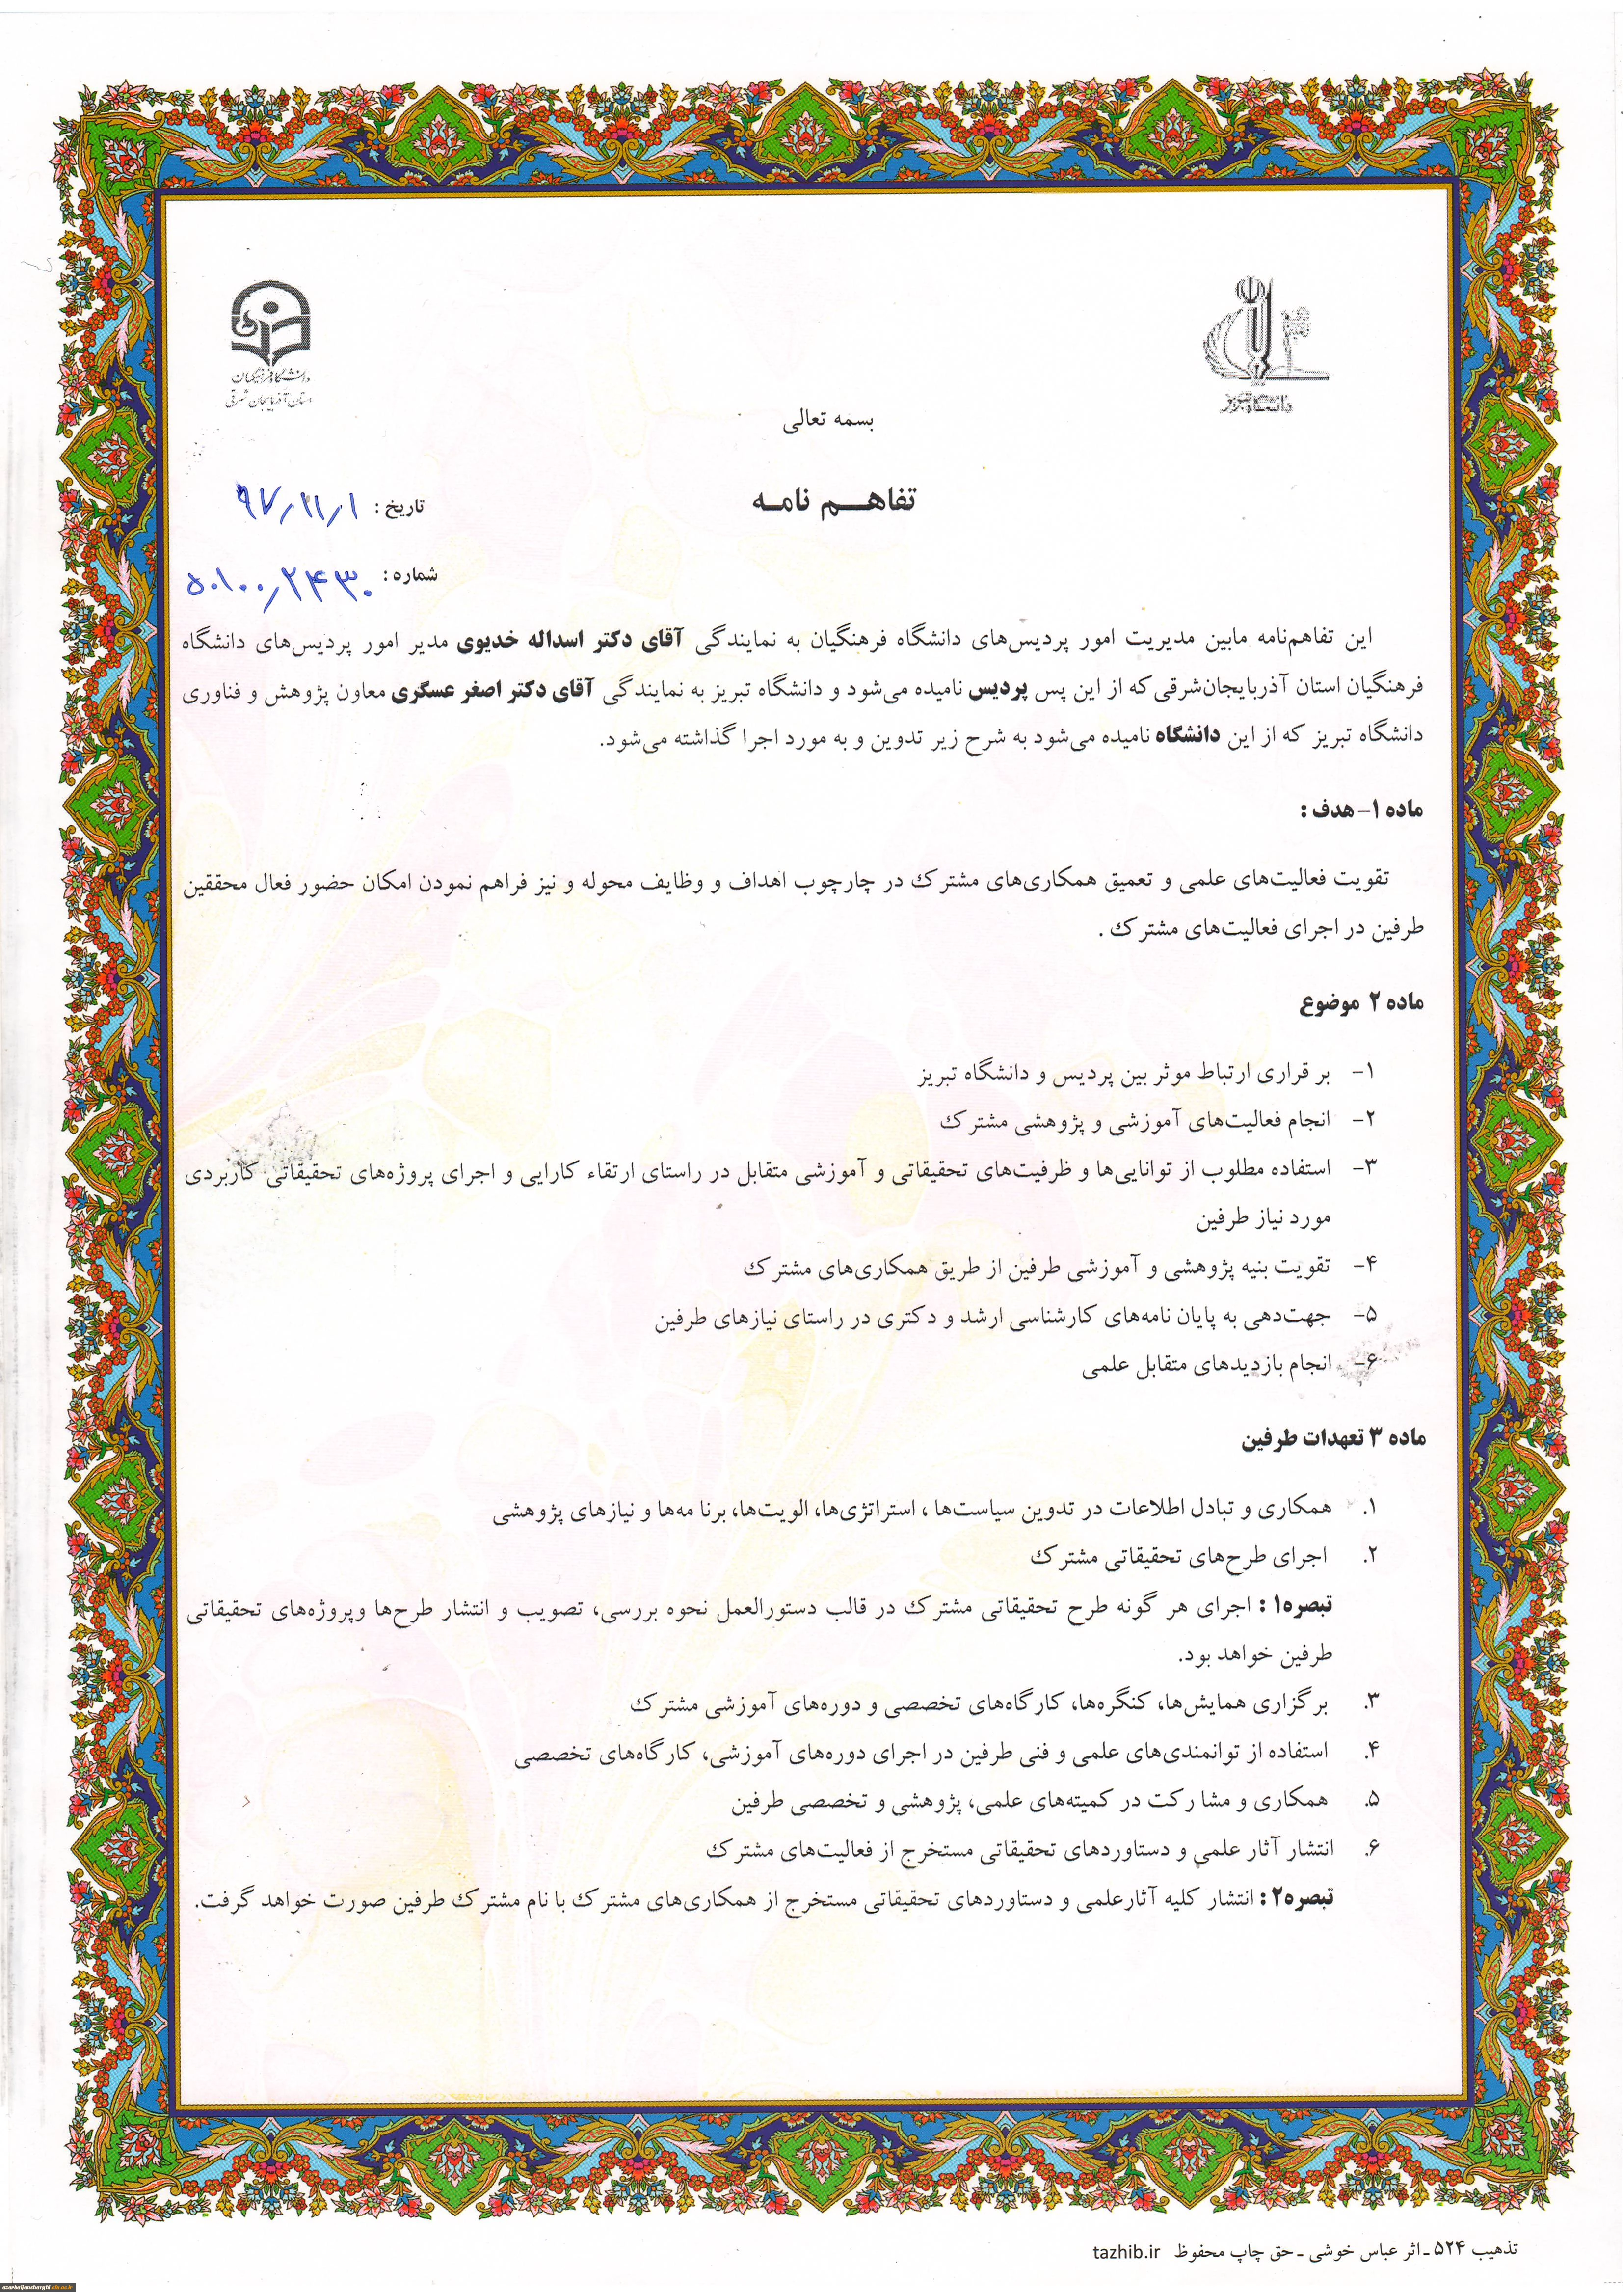 دانشگاه تبریز
دانشگاه فرهنگیان
استان آذربایجان شرقی
بسمه تعالی
تفاهم نامه
تاریخ : ۹۷/۱۱/۱
شماره : ۵۰۱۰۰/۲۴۳۰
این تفاهم‌نامه مابین مدیریت امور پردیس‌های دانشگاه فرهنگیان به نمایندگی آقای دکتر اسداله خدیوی مدیر امور پردیس‌های دانشگاه
فرهنگیان استان آذربایجان‌شرقی که از این پس پردیس نامیده می‌شود و دانشگاه تبریز به نمایندگی آقای دکتر اصغر عسگری معاون پژوهش و فناوری
دانشگاه تبریز که از این دانشگاه نامیده می‌شود به شرح زیر تدوین و به مورد اجرا گذاشته می‌شود.
ماده ۱- هدف :
تقویت فعالیت‌های علمی و تعمیق همکاری‌های مشترک در چارچوب اهداف و وظایف محوله و نیز فراهم نمودن امکان حضور فعال محققین
طرفین در اجرای فعالیت‌های مشترک .
ماده ۲ موضوع
۱- بر قراری ارتباط موثر بین پردیس و دانشگاه تبریز
۲- انجام فعالیت‌های آموزشی و پژوهشی مشترک
۳- استفاده مطلوب از توانایی‌ها و ظرفیت‌های تحقیقاتی و آموزشی متقابل در راستای ارتقاء کارایی و اجرای پروژه‌های تحقیقاتی کاربردی
مورد نیاز طرفین
۴- تقویت بنیه پژوهشی و آموزشی طرفین از طریق همکاری‌های مشترک
۵- جهت‌دهی به پایان نامه‌های کارشناسی ارشد و دکتری در راستای نیازهای طرفین
۶- انجام بازدیدهای متقابل علمی
ماده ۳ تعهدات طرفین
۱. همکاری و تبادل اطلاعات در تدوین سیاست‌ها ، استراتژی‌ها، الویت‌ها، برنا مه‌ها و نیازهای پژوهشی
۲. اجرای طرح‌های تحقیقاتی مشترک
تبصره۱ : اجرای هر گونه طرح تحقیقاتی مشترک در قالب دستورالعمل نحوه بررسی، تصویب و انتشار طرح‌ها وپروژه‌های تحقیقاتی
طرفین خواهد بود.
۳. برگزاری همایش‌ها، کنگره‌ها، کارگاه‌های تخصصی و دوره‌های آموزشی مشترک
۴. استفاده از توانمندی‌های علمی و فنی طرفین در اجرای دوره‌های آموزشی، کارگاه‌های تخصصی
۵. همکاری و مشارکت در کمیته‌های علمی، پژوهشی و تخصصی طرفین
۶. انتشار آثار علمی و دستاوردهای تحقیقاتی مستخرج از فعالیت‌های مشترک
تبصره۲ : انتشار کلیه آثارعلمی و دستاوردهای تحقیقاتی مستخرج از همکاری‌های مشترک با نام مشترک طرفین صورت خواهد گرفت.
تذهیب ۵۲۴ ـ اثر عباس خوشی ـ حق چاپ محفوظ tazhib.ir